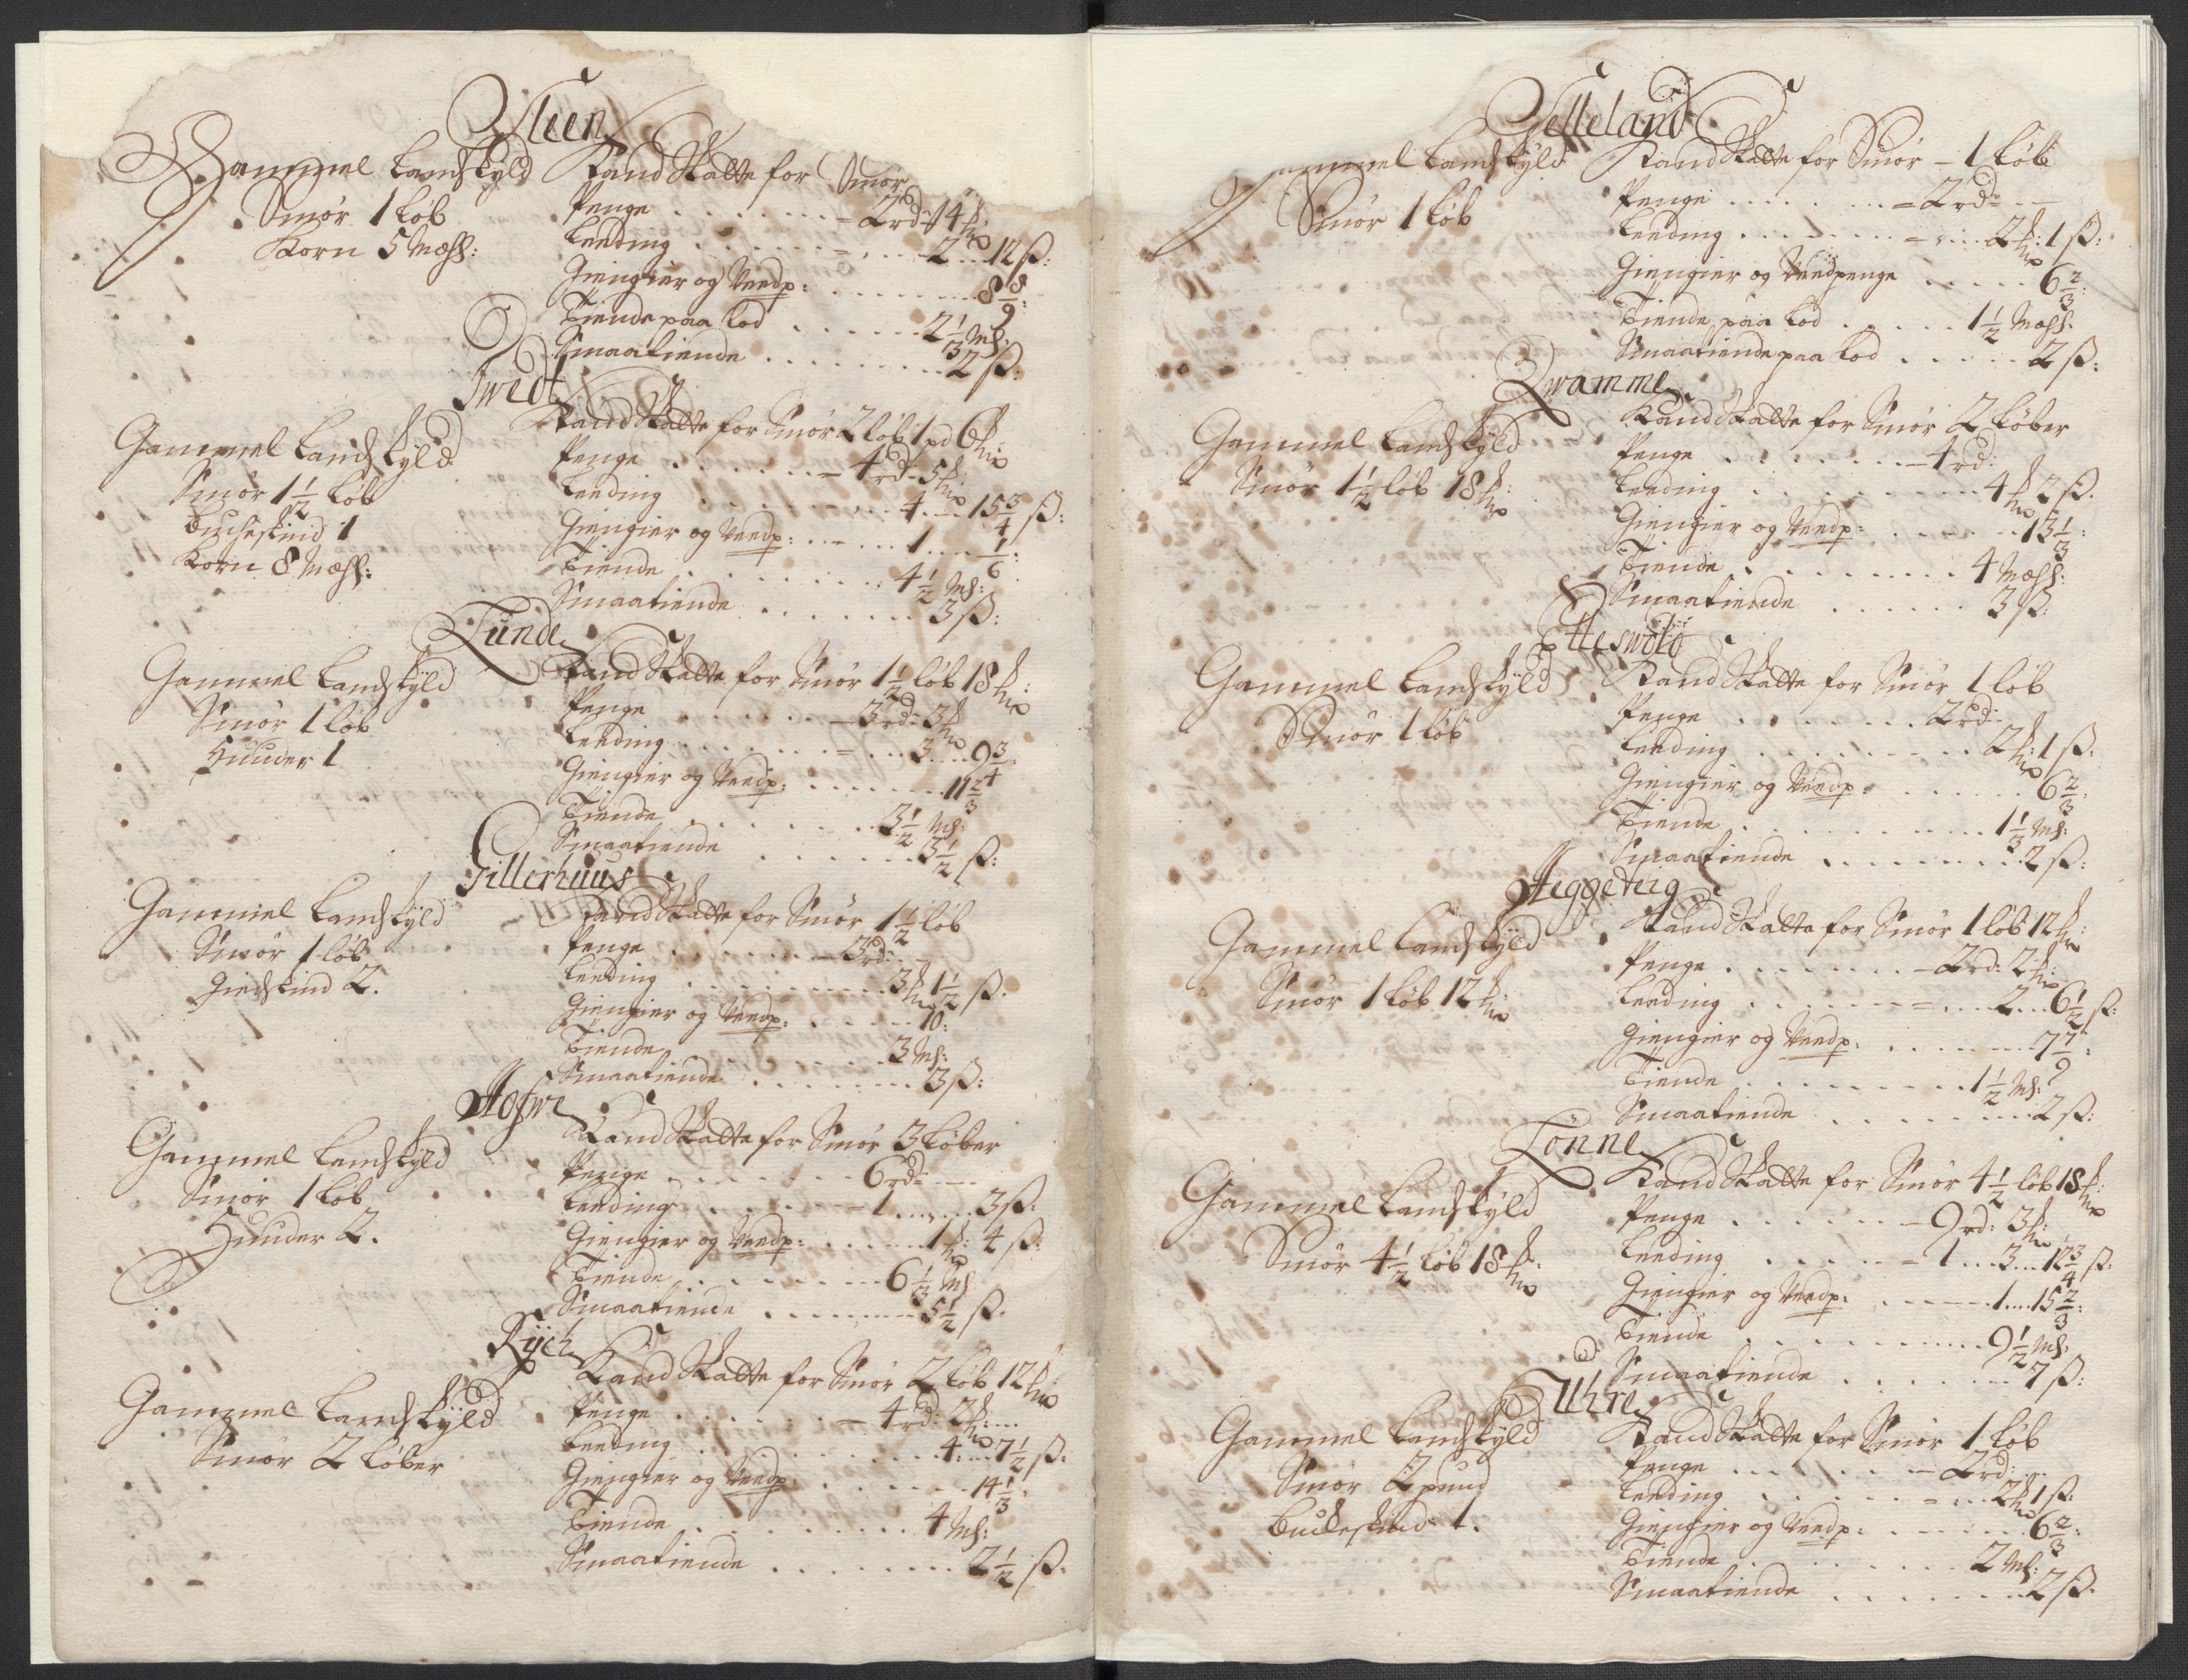 Steen
Gammel Landskyld
Smör 1 Løb
Korn 5 Mæhl:
Stand Skatte for Smör
Penge - 2 rd: 14
Leeding 2 12 ß:
Giengier og Veedp: 8 8/9:
Tiende paa Lod 2 1/3 Ml:
Smaatiende 2 ß:
Twedt
Gammel Landskyld
Smör 1 1/2 Løb
Buckeskind 1
Korn 8 Mæhl:
Stand Skatte for Smör 2 Løb 1 pd 6 mk
Penge - 4 rd: 5 mk
Leeding 4 15 3/4 ß:
Giengier og Veedp: 1 1/6:
Tiende 4 1/2 Ml:
Smaatiende 3 ß:
Lunde
Gammel Landskyld
Smör 1 Løb
Huuder 1
Stand Skatte for Smör 1 1/2 Løb 18 mk
Penge - 3 rd: 3 mk
Leeding = 3 9 3/4:
Giengier og Veedp: 11 2/3
Tiende 3 1/2 Ml:
Smaatiende 3 1/2 ß:
Gillerhuus
Gammel Landskyld
Smör 1 Løb
Giedskind 2.
Stand Skatte for Smör 1 1/2 Løb
Penge - 3 rd:
Leeding 3 mk 1 1/2 ß.
Giengier og Veedp: 10:
Tiende 3 Ml:
Smaatiende 3 ß:
Hofwe
Gammel Landskyld
Smör 1 Løb
Huuder 2.
Stand Skatte for Smör 3 Løber
Penge 6 rd:
Leeding - 1 3 ß:
Giengier og Veedp: 1 mk: 4 ß:
Tiende 6 1/3 Ml
Smaatiende 5 1/2 ß.
Rych
Gammel Landskyld
Smör 2 Løber
Stand Skatte for Smör 2 Løb 12 mk
Penge - 4 rd: 2 mk
Leeding 4 7 1/2 ß:
Giengier og Veedp: 14 1/3:
Tiende 4 Ml:
Smaatiende 2 1/2 ß.
Selleland
Gammel Landskyld
Smör 1 Løb
Stand Skatte for Smör - 1 Løb
Penge = 2 rd:
Leeding = 2 mk: 1 ß:
Giengier og Veedpenge 6 2/3:
Tiende paa Lod 1 1/2 Mæhl:
Smaatiende paa Lod 2 ß:
Qwamme
Gammel Landskyld
Smör 1 1/2 Løb 18 mk:
Stand Skatte for Smör 2 Løber
Penge - 4 rd:
Leeding 4 mk 2 ß.
Giengier og Veedp: 13 1/3:
Tiende 4 Mæhl:
Smaatiende 3 ß:
Etteswold
Gammel Landskyld
Smör 1 Løb
Stand Skatte for Smör 1 Løb
Penge 2 rd:
Leeding 2 mk: 1 ß:
Giengier og Veedp: 6 2/3:
Tiende 1 1/3 Ml:
Smaatiende 2 ß:
Heggeteig
Gammel Landskyld
Smör 1 Løb 12 mk:
Stand Skatte for Smör 1 Løb 12 mk:
Penge - 2 rd: 2 mk:
Leeding = 2 6 1/2 ß:
Giengier og Veedp: 7 7/9:
Tiende 1 1/2 Ml:
Smaatiende 2 ß:
Lönne
Gammel Landskyld
Smör 4 1/2 Løb 18 mk:
Stand Skatte for Smör 4 1/2 Løb 18 mk:
Penge - 9 rd: 3 mk:
Leeding = 1 3 12 3/4 ß:
Giengier og Veedp: 1 15 2/3:
Tiende 9 1/2 Ml:
Smaatiende 7 ß:
Uhre
Gammel Landskyld
Smör 2 pund
Buckeskind 1.
Stand Skatte for Smör 1 Løb
Penge - 2 rd:
Leeding = 2 mk 1 ß:
Giengier og Veedp: 6 2/3:
Tiende 2 Ml:
Smaatiende 2 ß.